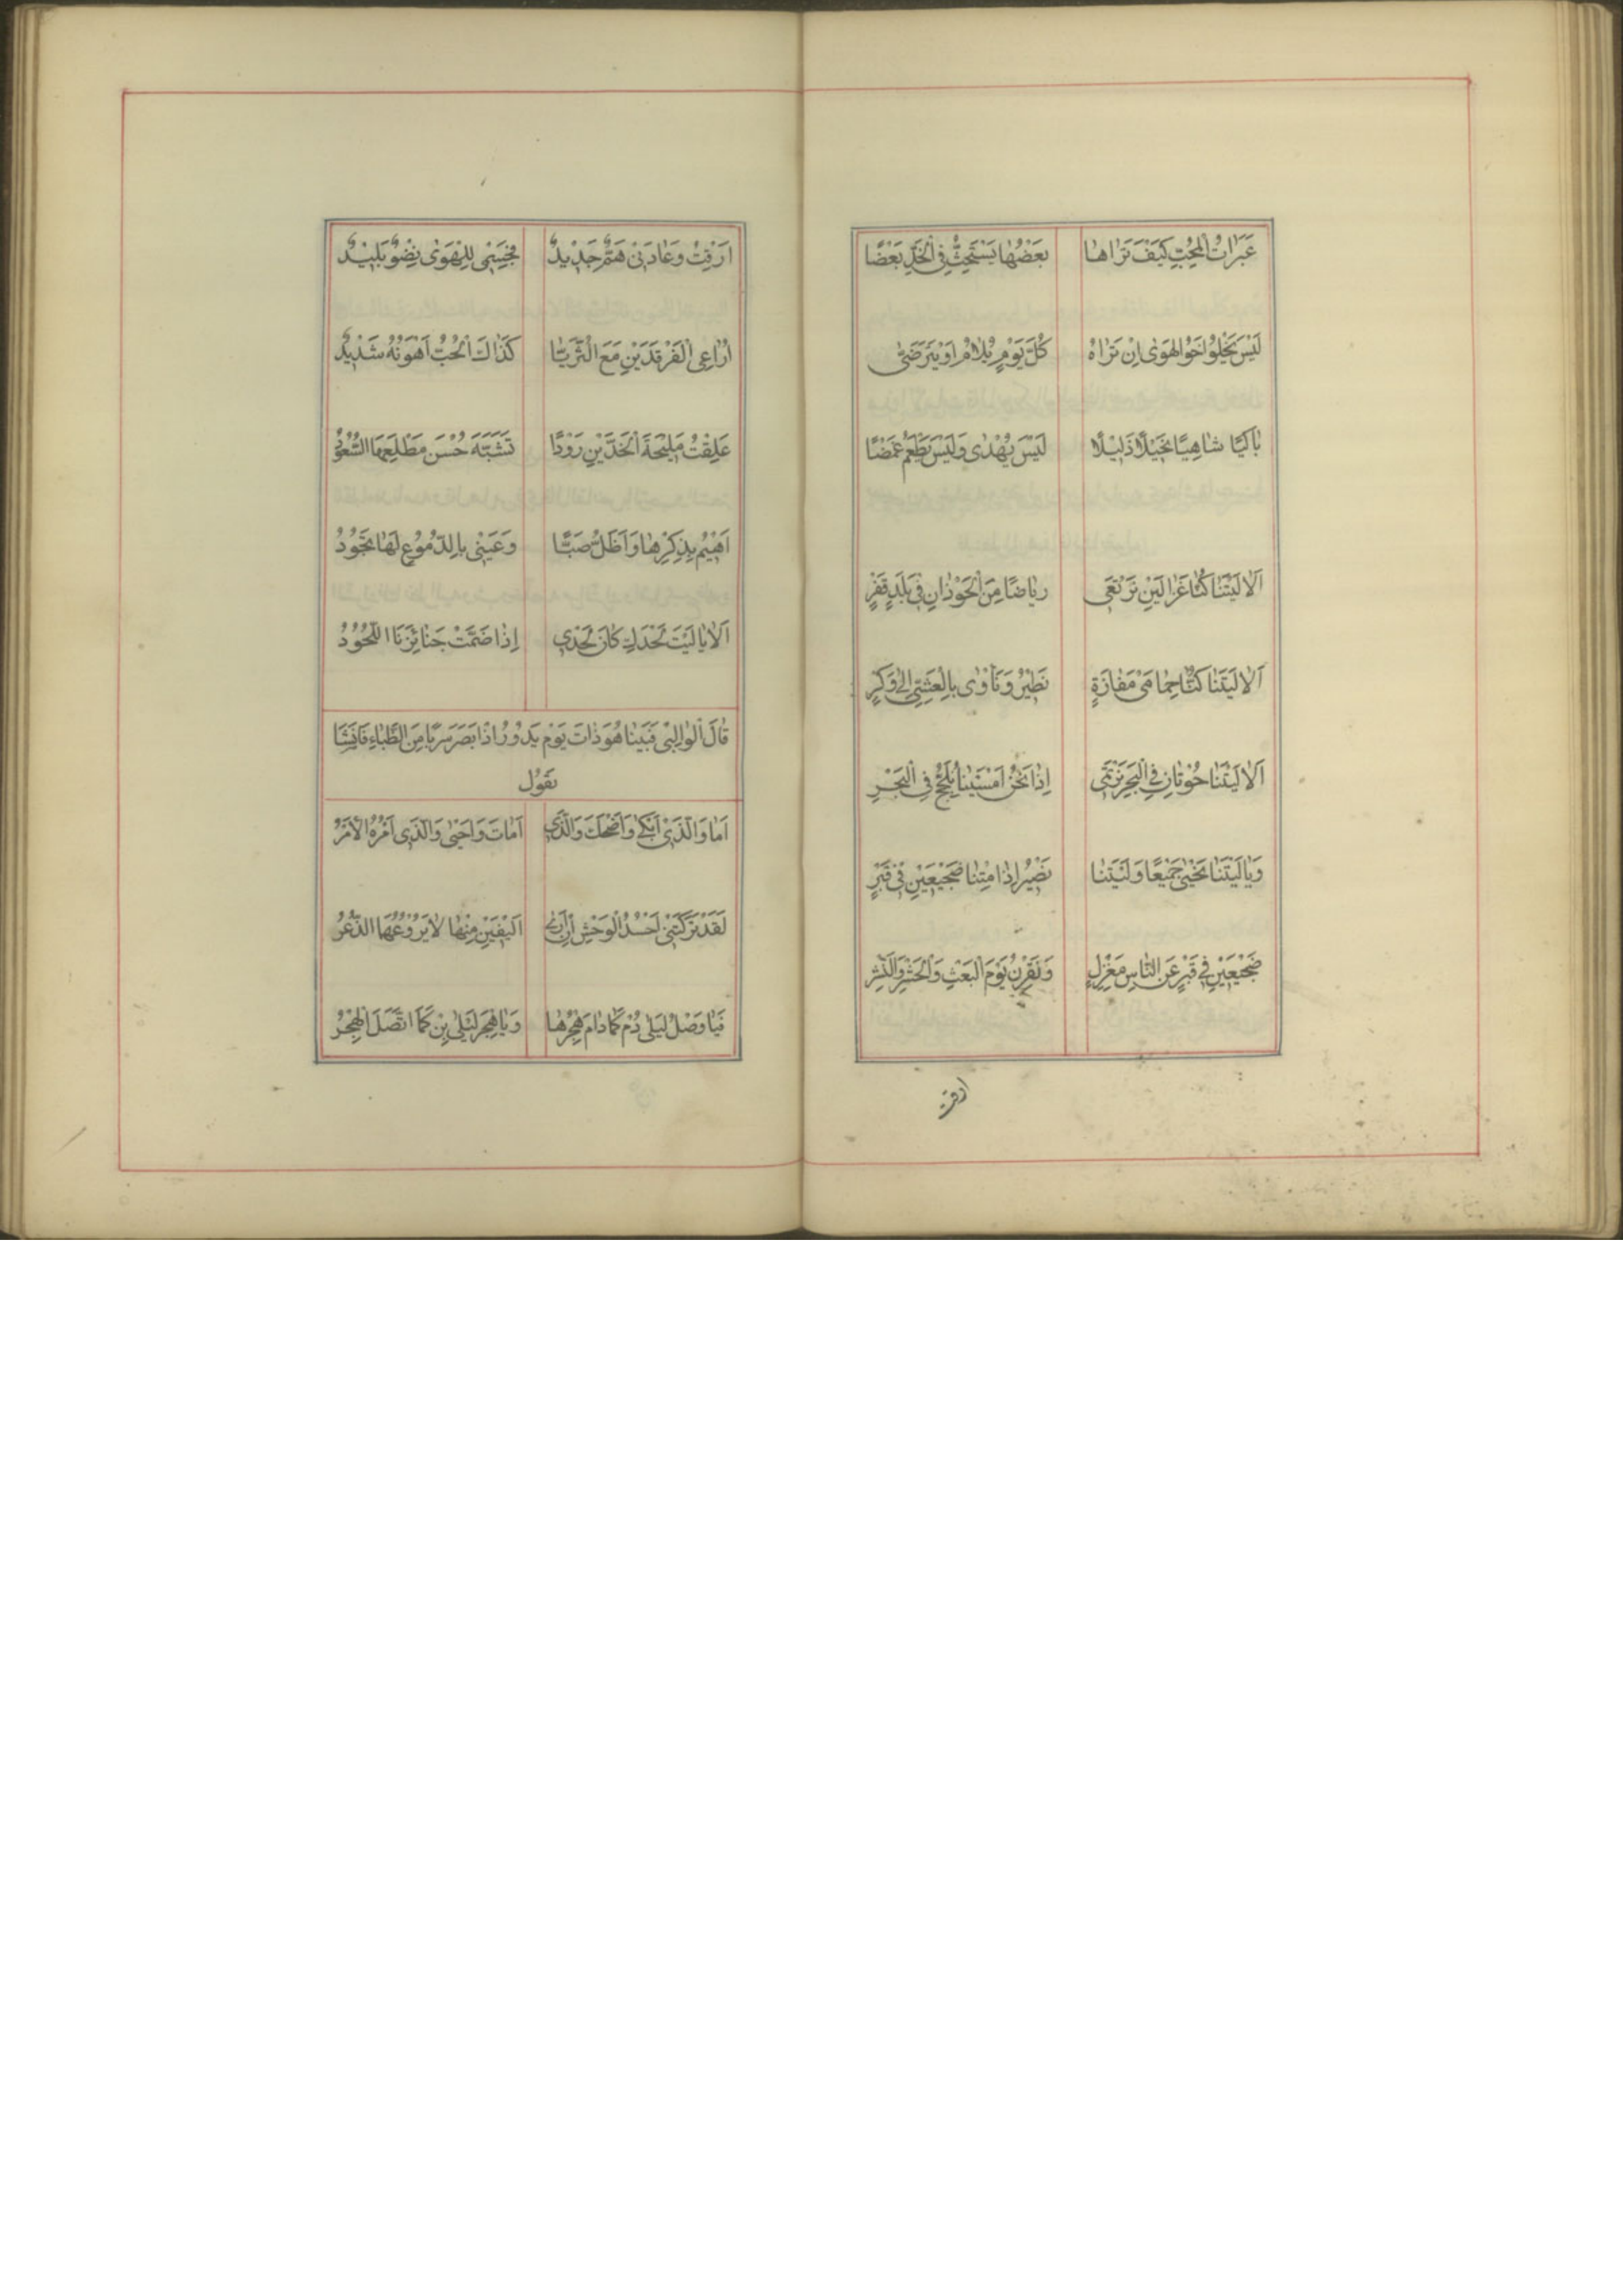 عَبَرَاتُ الْمُحِبِّ كَيْفَ تَرَاهَا بَعْضُهَا يَسْتَحِثُّ فِي الْخَدِّ بَعْضًا
لَيْسَ يَخْلُوا اَخُو الهَوٰى اِنْ تَرَاهُ كُلَّ يَوْمٍ يُلَامُ اَوْ يَتَرَضّٰى
بَاكِيًا سَاهِيًا نَحِيْلًا ذَلِيْلًا لَيْسَ يُهْدٰى وَلَيْسَ يَطْعَمُ غَمْضًا
اَلَا لَيْتَنَا كُنَّا غَزَالَيْنِ نَرْتَعِي رِيَاضًا مِنَ الْحَوْذَانِ فِي بَلَدٍ قَفْرٍ
اَلَا لَيْتَنَا كُنَّا حَمَامَيْ مَفَازَةٍ نَطِيْرُ وَنَأْوٰى بِالْعَشِيِّ اِلٰى وَكْرٍ
اَلَا لَيْتَنَا حُوْتَانِ فِي الْبَحْرِ نَرْتَمِي اِذَا نَحْنُ اَمْسَيْنَا نُلَجِّجُ فِي الْبَحْرِ
وَيَا لَيْتَنَا نَحْيٰى جَمِيْعًا وَلَيْتَنَا نَصِيْرُ اِذَا مِتْنَا ضَجِيْعَيْنِ فِي قَبْرٍ
ضَجِيْعَيْنِ فِي قَبْرٍ عَنِ النَّاسِ مَعْزِلٍ وَنُقْرَنُ يَوْمَ الْبَعْثِ وَالْحَشْرِ وَالنَّشْرِ
ارقت
اَرِقْتُ وَعَادَنِيْ هَمٌّ جَدِيْدٌ فَجِسْمِي لِلْهَوٰى نِضْوٌ بَلِيْدٌ
اُرَاعِي الْفَرْقَدَيْنِ مَعَ الْثُرَيَّا كَذَاكَ الْحُبُّ اَهْوَنُهُ شَدِيْدٌ
عَلِقْتُ مَلِيْحَةَ الْخَدَّيْنِ رَوْدًا تَشَبَّهَ حُسْنَ مَطْلَعِهَا السُّعُوْدُ
اَهِيْمُ بِذِكْرِهَا وَاَظَلُّ صَبًّا وَعَيْنِي بِالدُّمُوْعِ لَهَا تَجُوْدُ
اَلَا يَا لَيْتَ لَحْدَكِ كَانَ لَحْدِي اِذَا ضَمَّتْ جَنَائِزَنَا اللُّحُوْدُ
قَالَ الْوَالِبِي فَبَيْنَا هُوَ ذَاتَ يَوْمٍ يَدُوْرُ اِذْ اَبْصَرَ سِرْبًا مِنَ الظِّبَاءِ فَاَنْشَاَ
يَقُوْل
اَمَا وَالَّذِيْ اَبْكٰى وَاَضْحَكَ وَالَّذِي اَمَاتَ وَاَحْيٰى وَالَّذِي اَمْرُهُ الْاَمْرُ
لَقَدْ تَرَكَتْنِي اَحْسُدُ الْوَحْشَ اَنْ اَرٰى اَلِيْفَيْنِ مِنْهَا لَا يَرُوْعُهُمَا الذُّعْرُ
فَيَا وَصْلَ لَيْلٰى دُمْ كَمَا دَامَ هَجْرُهَا وَيَا هَجْرَ لَيْلٰى بِنْ كَمَا اتَّصَلَ الْهَجْرُ